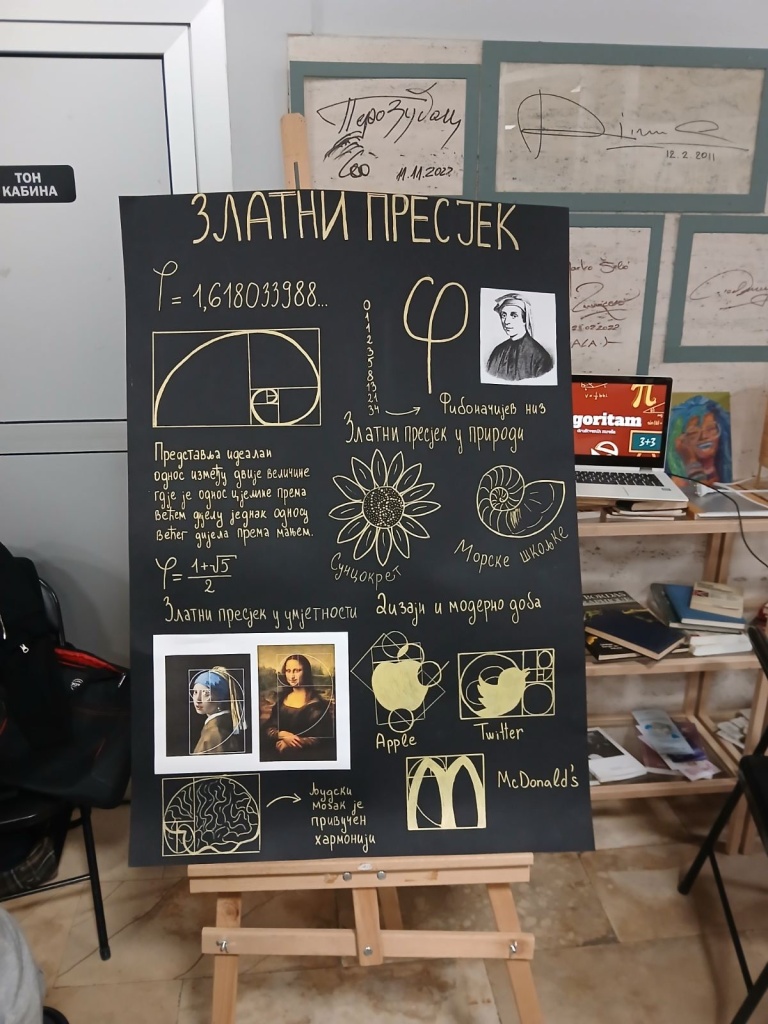 ТОН
КАБИНА
11.11.2022
12.2 2011
ЗЛАТНИ ПРЕСЈЕК
φ = 1,618033988...
0
1
1
2
3
5
8
13
21
34
φ
Фибоначијев низ
Представља идеалан
однос између двије величине
гдје је однос цјелине према
већем дјелу једнак односу
већег дијела према мањем.
φ = 1+√5
2
Златни пресјек у природи
Сунцокрет
Морске шкољке
Златни пресјек у умјетности
Дизајн и модерно доба
Apple
Twitter
McDonald's
људски
мозак је
привучен
хармонији
π
goritam
3+3